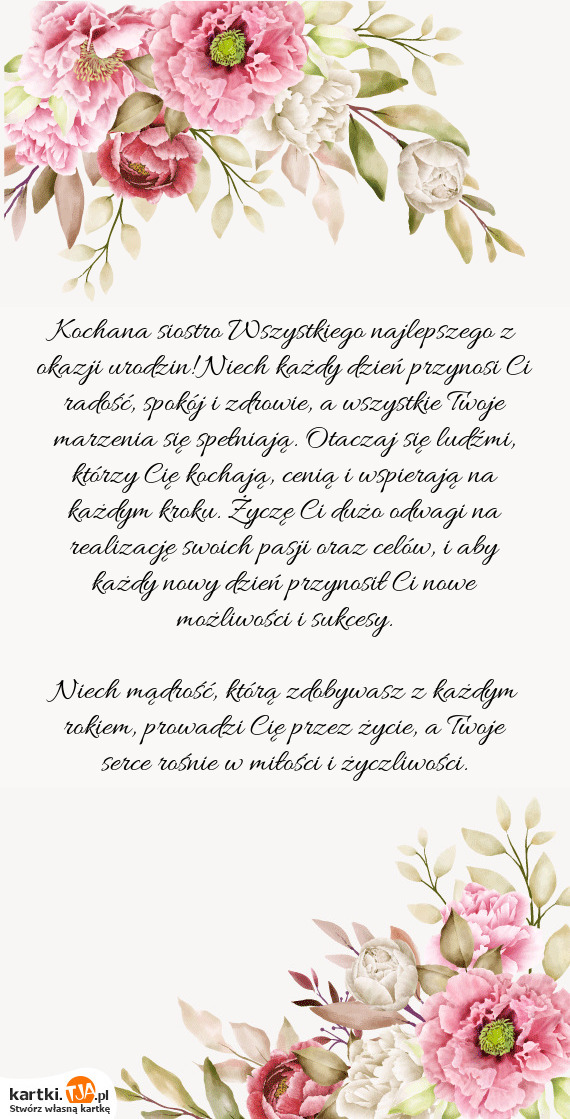 Kochana siostro Wszystkiego najlepszego z
okazji urodzin! Niech każdy dzień przynosi Ci
radość, spokój i zdrowie, a wszystkie Twoje
marzenia się spełniają. Otaczaj się ludźmi,
którzy Cię kochają, cenią i wspierają na
każdym kroku. Życzę Ci dużo odwagi na
realizację swoich pasji oraz celów, i aby
każdy nowy dzień przynosił Ci nowe
możliwości i sukcesy.
Niech mądrość, którą zdobywasz z każdym
rokiem, prowadzi Cię przez życie, a Twoje
serce rośnie w miłości i życzliwości.
kartki.TJA.pl
Stwórz własną kartkę